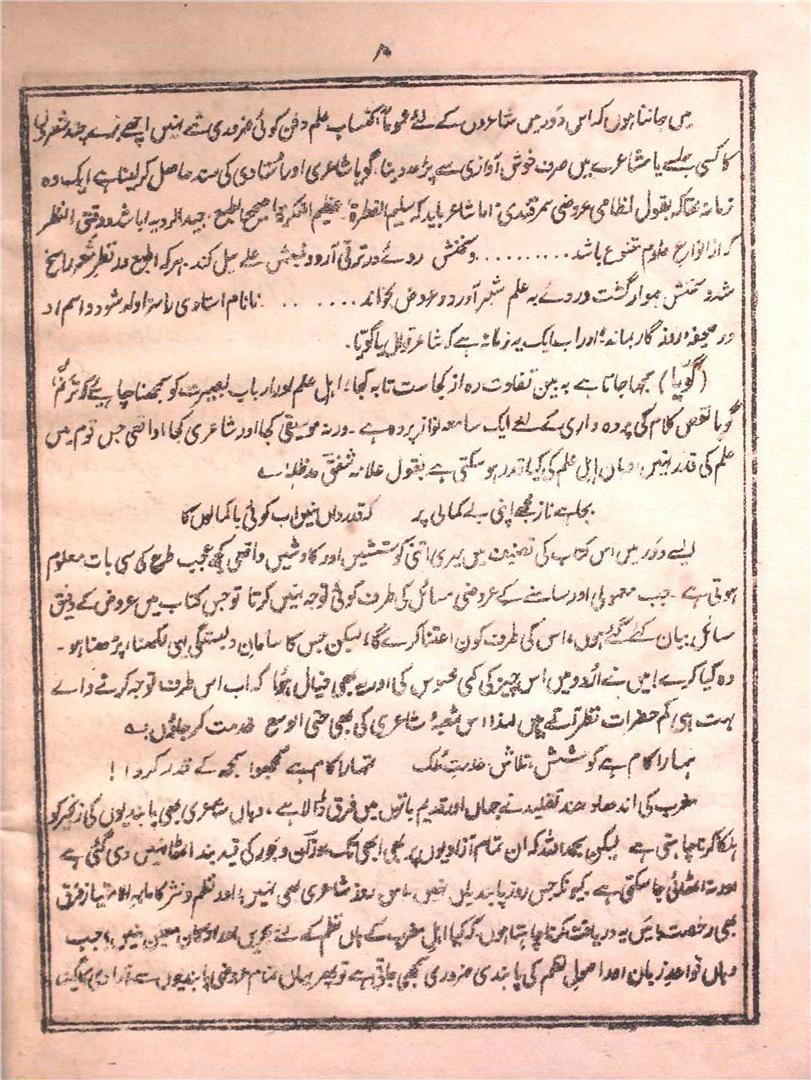 ۸
میں جانتا ہوں کہ اس دَور میں شاعروں کے لئے عموماً اکتساب علم و فن کوئی ضروری شے نہیں اچھے بُرے چند شعروں
کا کسی جلسے یا مشاعرے میں صرف خوش آوازی سے پڑھ دینا۔ گویا شاعری اور اُستادی کی سند حاصل کر لینا ہے ایک وہ
زمانہ تھا کہ بقول نظامی عروضی سمرقندی: اما شاعر باید کہ سلیم الفطرة، عظیم الفکرة، صحیح الطبع، جید الرویہ باشد و دقیق النظر
کہ از انواع علوم متنوع باشد.......... و سخنش روئے در ترقی آرد و طبعش علے میل کند، ہر کہ را طبع در نظمِ شعر راسخ
شد و سخنش ہموار گشت و روے بہ علم شعر آورد و عروض بخواند........ تا نام استادی را سزاوار شود و اسم او
در صحیفہ روزگار بماند، اور اب ایک یہ زمانہ ہے کہ شاعر قوال یا گویّا۔
(گَوَیّا) سمجھا جاتا ہے بہ بین تفاوت رہ از کجاست تا بہ کجا، اہل علم اور ارباب بصیرت کو سمجھنا چاہیے کہ ترنّم،
گویا نقص کلام کی پردہ داری کے لئے ایک سامعہ نواز پردہ ہے۔ ورنہ موسیقی کجا اور شاعری کجا، واقعی جس قوم میں
علم کی قدر نہیں، وہاں اہل علم کی کیا قدر ہو سکتی ہے بقول علامہ شفقؔ مدظلہ؎
بجا ہے ناز مجھے اپنی بے کمالی پر کہ قدرداں نہیں اب کوئی باکمالوں کا
ایسے دَور میں اس کتاب کی تصنیف میں میری اتنی کوششیں اور کاوشیں واقعی کچھ عجیب طرح کی سی بات معلوم
ہوتی ہے۔ جب معمولی اور سامنے کے عروضی مسائل کی طرف کوئی توجہ نہیں کرتا تو جس کتاب میں عروض کے دقیق
مسائل بیان کئے گئے ہوں، اس کی طرف کون اعتنا کرے گا، لیکن جس کا سامانِ دلبستگی ہی لکھنا، پڑھنا ہو۔
وہ کیا کرے! میں نے اُردو میں اس چیز کی کمی محسوس کی اور یہ بھی خیال ہوا کہ اب اس طرف توجہ کرنے والے
بہت ہی کم حضرات نظر آتے ہیں لہٰذا اس شعبۂ شاعری کی بھی حتی الوسع خدمت کر جاؤں؎
ہمارا کام ہے کوشش، تلاش، خدمتِ ملک تمہارا کام ہے سمجھو! سمجھ کے قدر کرو!!
مغرب کی اندھا دھند تقلید نے جہاں اور قدیم باتوں میں فرق ڈالا ہے، وہاں شاعری بھی پابندیوں کی زنجیر کو
ہلکا کرنا چاہتی ہے لیکن بحمد اللہ کہ ان تمام آزادیوں پر بھی ابھی تک وزن و بحور کی قید بند اٹھا نہیں دی گئی ہے
اور نہ اٹھائی جا سکتی ہے۔ کیونکہ جس روز پابندیاں نہیں، اس روز شاعری بھی نہیں، اور نظم و نثر کا مابہ الامتیاز فرق
بھی رخصت، میں یہ دریافت کرنا چاہتا ہوں کہ کیا اہل مغرب کے ہاں نظم کے لئے بحریں اور اوزان معین نہیں، جب
وہاں قواعدِ زبان اور اصولِ نظم کی پابندی ضروری سمجھی جاتی ہے تو پھر یہاں تمام عروضی پابندیوں سے آزادی